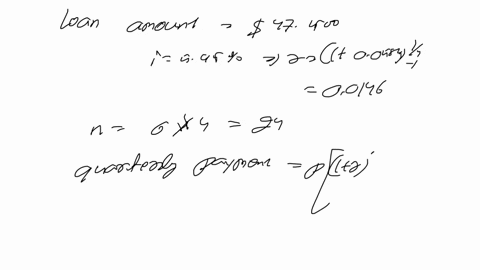 loan amount = $ 47.400
i = 5.95% => r = (1 + 0.0595)^1/4 - 1
= 0.0146
n = 6 x 4 = 24
quarterly payment = p[(1+r)^i